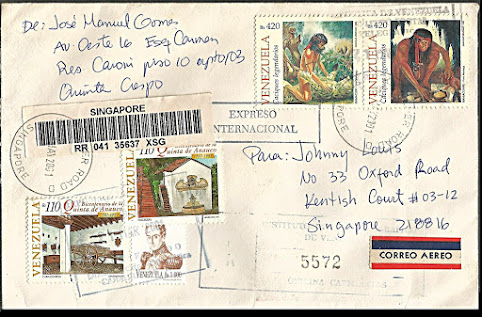 De: José Manuel Comas
Av. Oeste 16 Esq Carmen
Res Caroni piso 10 apto 103
Quinta Crespo
SINGAPORE
RR 041 35637 XSG
EXPRESO
INTERNACIONAL
VENEZUELA
420
Caciques legendarios
VENEZUELA
420
Caciques legendarios
Para: Johnny Louis
No 33 Oxford Road
Kentish Court #03-12
Singapore 218816
5572
CORREO AEREO
VENEZUELA
110
Bicentenario de la
Quinta de Anauco
VENEZUELA
110
Bicentenario de la
Quinta de Anauco
VENEZUELA
SINGAPORE